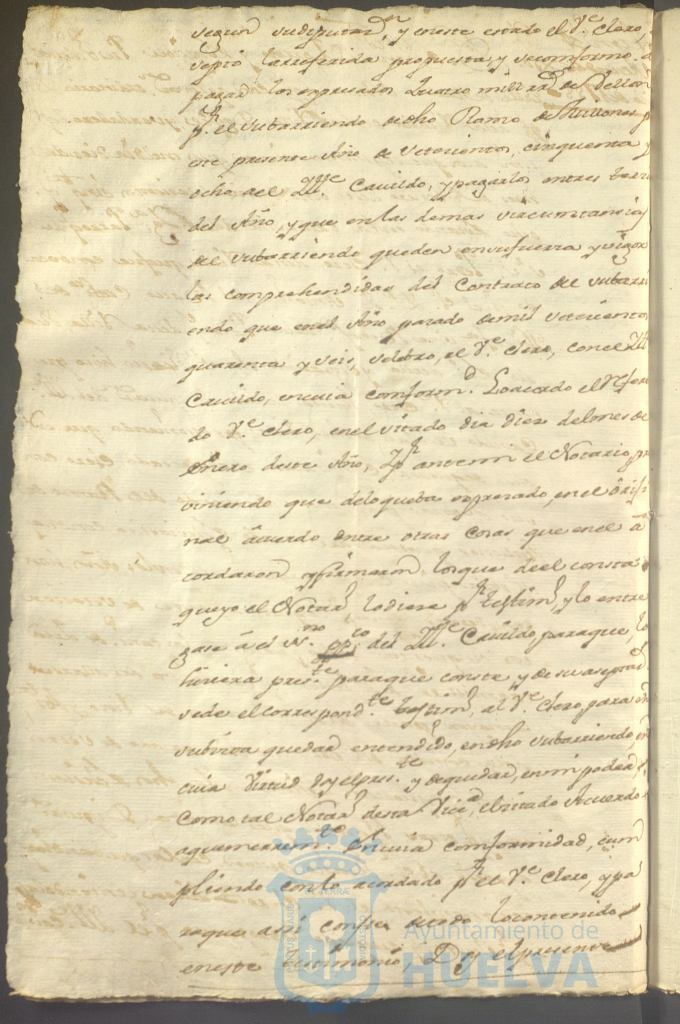 segun su diputaz.on, y en este estado el V.e Clero,
septó la referida propuesta, y se conformo. a
pagar los expresados Quatro mill rr.s de Vellon
p.r el subarriendo de dho Ramo de Millones p
este presente Año de Setecientos, cinquenta y
ocho a el Ill.e Cavildo, y pagarlos en tres terci
del Año, y que en las demas circumtancias
de subarriendo queden en su fuerza y vigor
las comprehendidas del Contrato de subarri
endo que en el Año pasado de mil setecientos
quarenta y seis, selebro, el V.e Clero, con el Ill
Cavildo, en cuia conform.d Lo acordo el refer
do V.e Clero, en el citado dia diez del mes de
Enero deste Año, p.r ante mi el Notario, pre
viniendo que de lo que ba expresado, en el Orixi
nal acuerdo entre otras cosas que en el a
cordaron y firmaron los que de el consta
que yo el Notar.o lo diera p.r testim.o, y lo entre
gase â el N.no pp.co del Ill.e Cavildo para que, lo
hiciera pres.te para que conste y de su aseptaz.
se de el correspond.te testim.o, al V.e Clero, para
subirta quedar entendido, en dho subarriendo, en
cuia virtud doy el pres.te y de quedar, en mi poder
Como tal Notar.o desta Vic.a, el citado Acuerdo
a que me rem.to En cuia conformidad, cum
pliendo con lo acordado p.r el V.e Clero, y pa
ra que asi conste siendo lo contenido
en este testimonio, Doy el presente
Ayuntamiento de
HUELVA